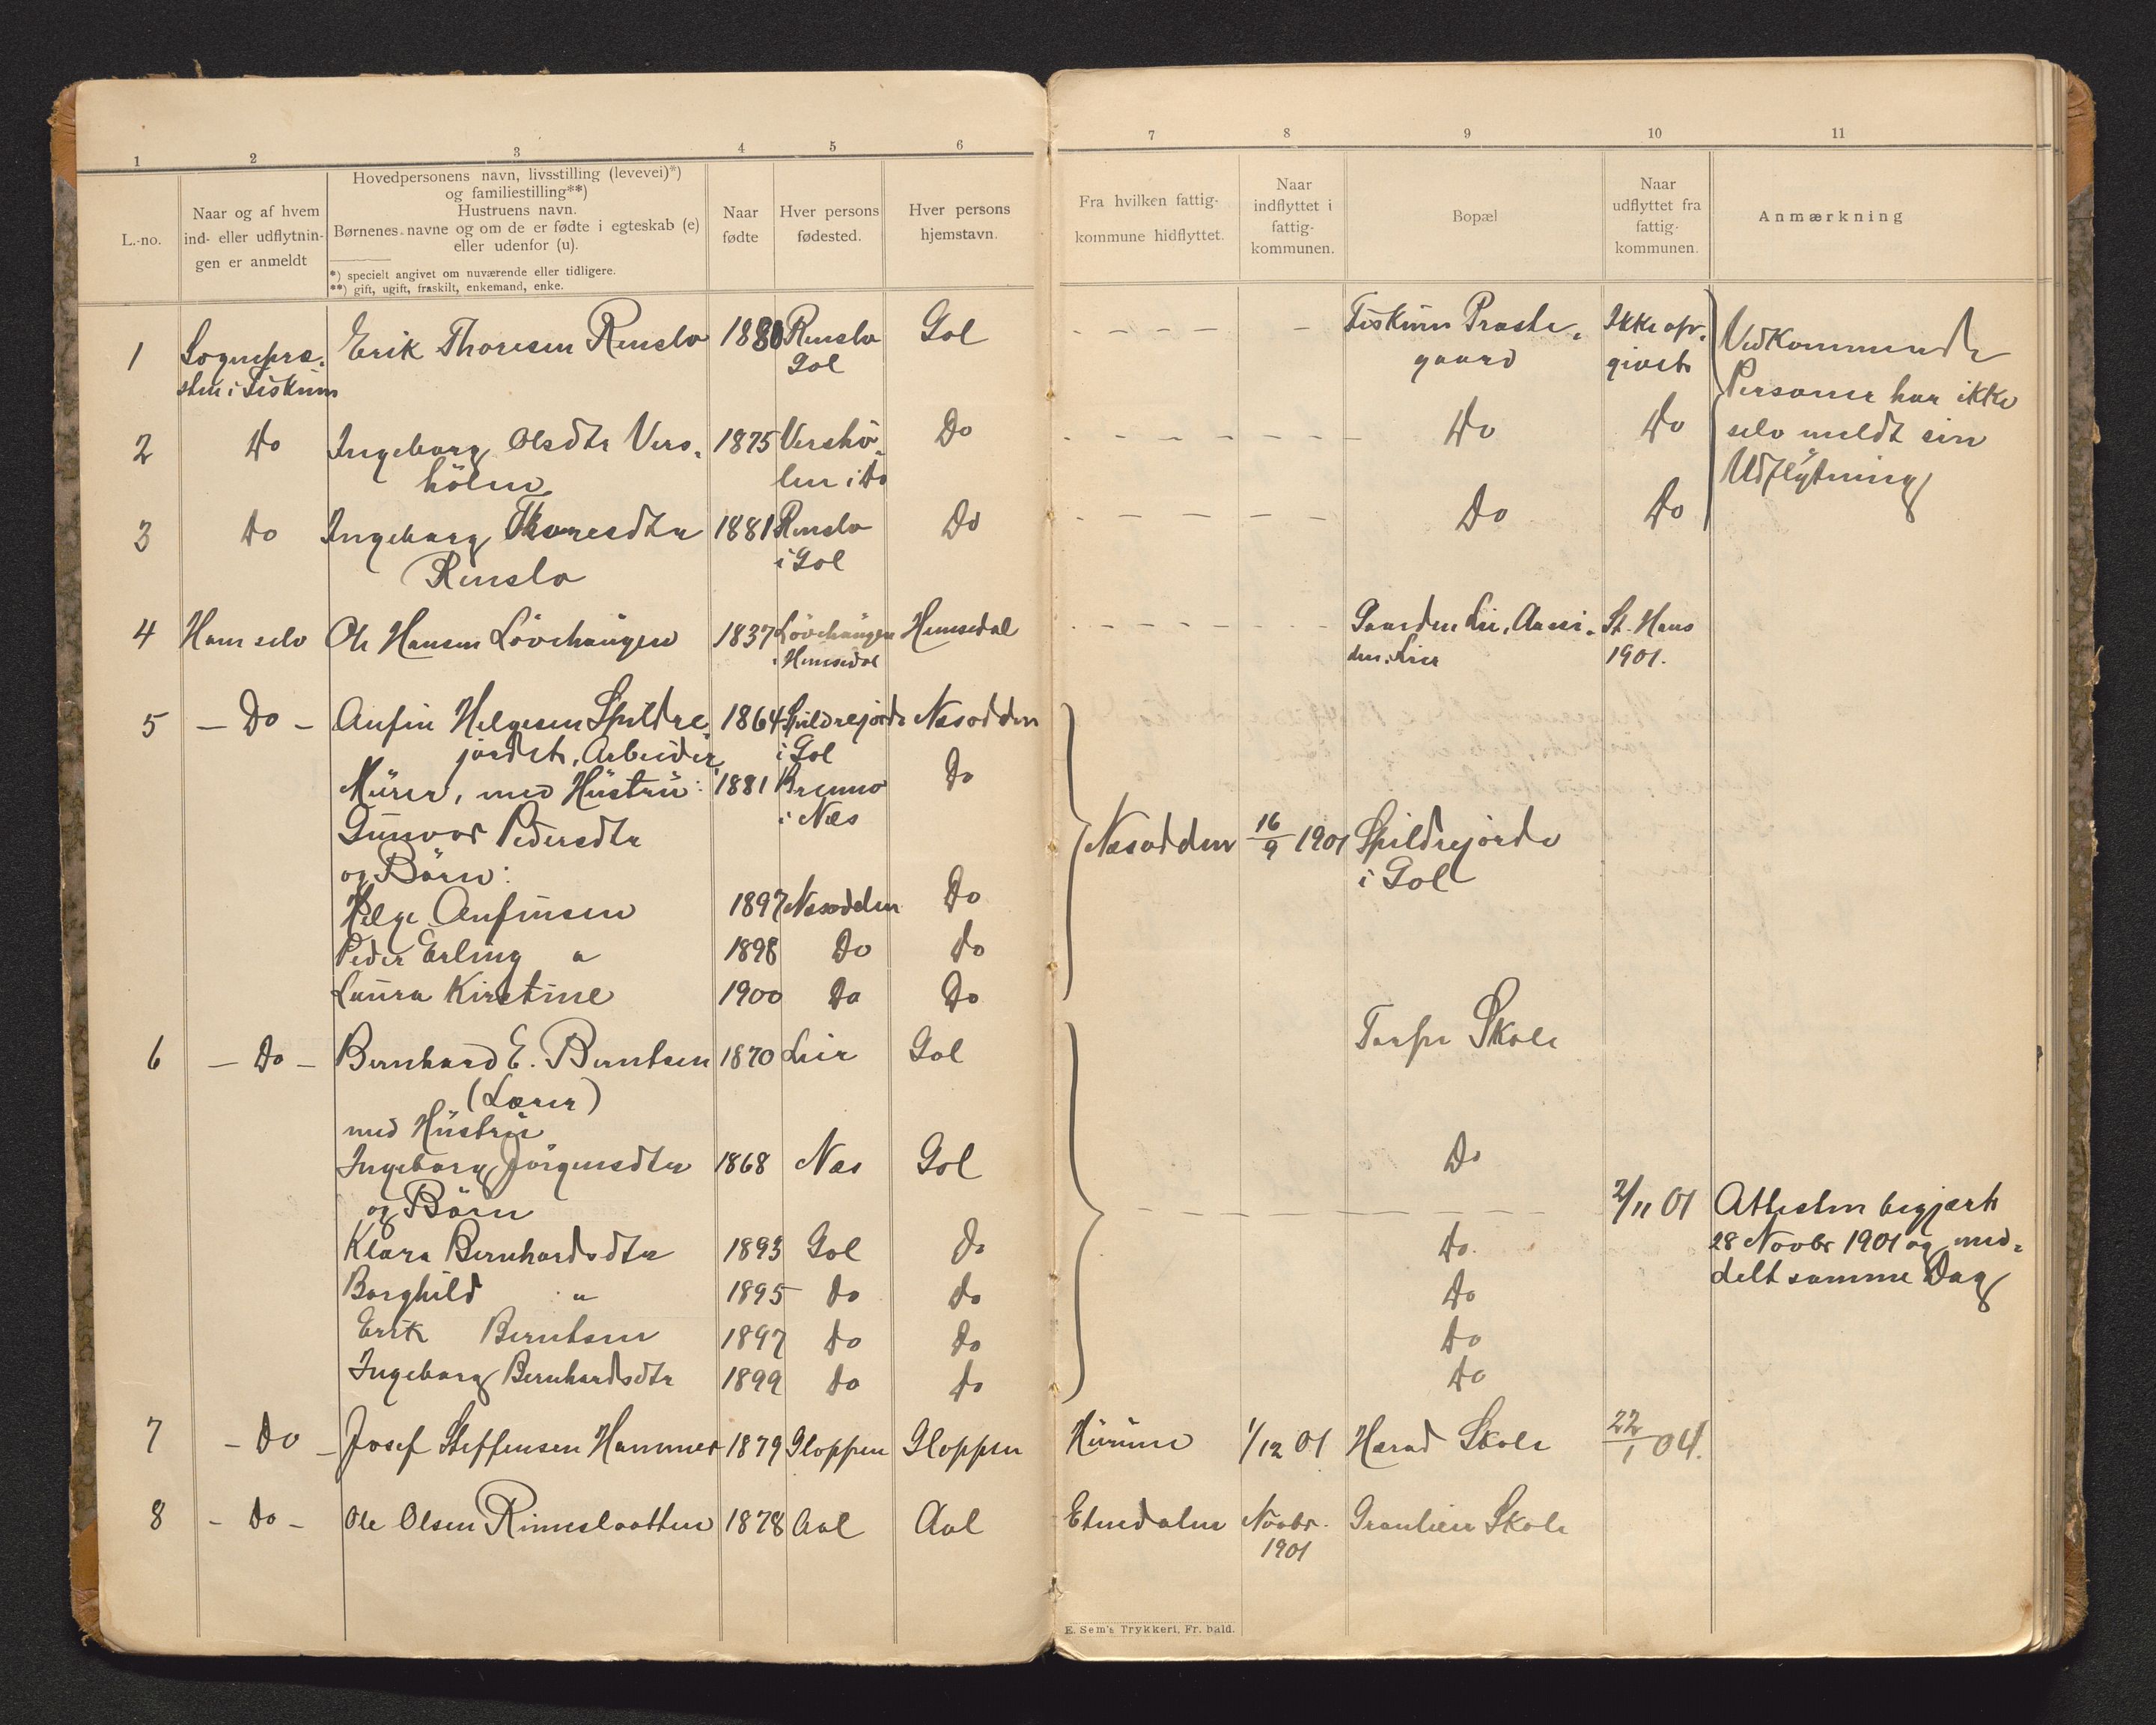 1
2
3
4
5
6
7
8
9
10
11
L.-no.
Naar og af hvem
ind- eller udflytnin-
gen er anmeldt
Hovedpersonens navn, livsstilling (levevei)*)
og familiestilling**)
Hustruens navn.
Børnenes navne og om de er fødte i egteskab (e)
eller udenfor (u).
*) specielt angivet om nuværende eller tidligere.
**) gift, ugift, fraskilt, enkemand, enke.
Naar
fødte
Hver persons
fødested.
Hver persons
hjemstavn.
Fra hvilken fattig-
kommune hidflyttet.
Naar
indflyttet i
fattig-
kommunen.
Bopæl
Naar
udflyttet fra
fattig-
kommunen.
Anmærkning
1 Sognepræ- Erik Thoresen Renslo 1880 Renslo Gol - - - - - Fiskum Præste- Ikke op-
sten i Fiskum Gol gaard givet
Vedkommende
Personer har ikke
selv meldt sin
Udflytning
2 Do Ingeborg Olsdtr Vers- 1875 Vershø- Do - - - - - - - Do Do
hölen len i Do
3 Do Ingeborg Thoresdtr 1881 Renslo Do - - - - - - Do Do
Renslo i Gol
4 Ham selv Ole Hansen Lövehaugen 1837 Lövehaugen Hemsedal - - - - - - - Gaarden Lie, St. Hans
i Hemsedal Lier 1901.
5 - Do - Anfin Helgesen Spildre- 1864 Spildrejorde Næsodden
jordet, Arbeider, i Gol
Mürer, med Hüstrü: 1881 Brenno Do
Günvor Pedersdtr i Næs
Næsodden 16/9 1901 Spildrejorde
i Gol
og Börn:
Helge Anfinsen 1897 Næsodden Do
Peder Erling " 1898 Do Do
Laura Kirstine 1900 Do Do
6 - Do - Bernhard E. Berntsen 1870 Lier Gol Torpe Skole
(Lærer)
med Hüstrü
Ingeborg Jörgensdtr 1868 Næs Gol Do
og Börn
- - - - - - - - 2/11 01 Attesten begjært
28 Novbr 1901 og med-
delt samme Dag
Klara Bernhardsdtr 1893 Gol Do Do
Borghild " 1895 Do Do Do
Erik Berntsen 1897 Do Do Do
Ingeborg Bernhardsdtr 1899 Do Do Do
7 - Do - Josef Steffensen Hammer 1879 Gloppen Gloppen Hürüm 1/12 01 Herad Skole 22/1 04.
8 - Do - Ole Olsen Rimeslaatten 1878 Aal Aal Etnedalen Novbr. Granlien Skole
1901
E. Sem's Trykkeri, Fr. hald.